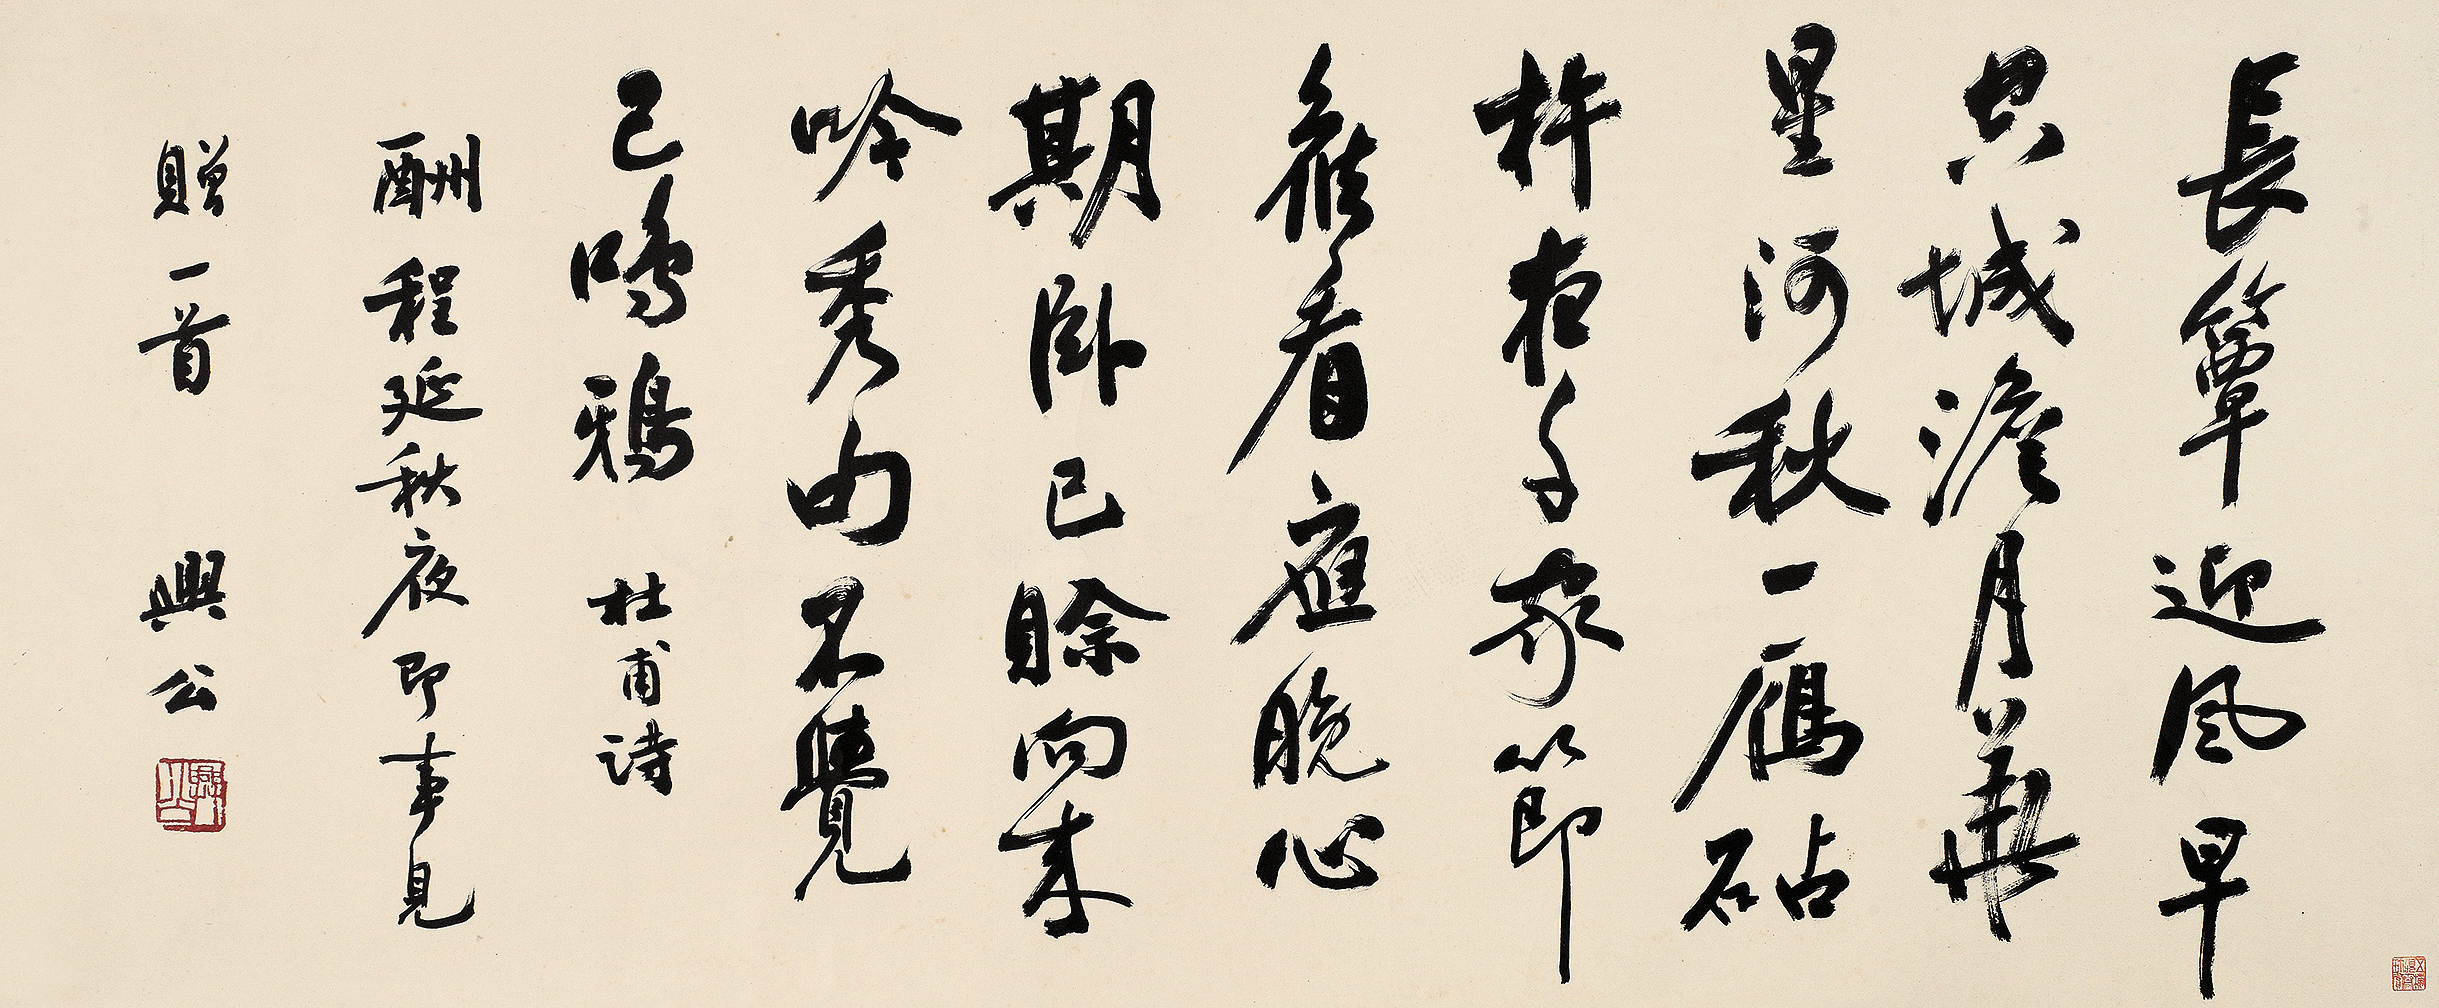 長簟迎風早
空城澹月華
星河秋一鴈砧
杵夜千家節
候看應晚心
期臥已賒向來
吟秀句不覺
已鳴鴉 杜甫詩
酬程延秋夜即事見
贈一首 興公
興公